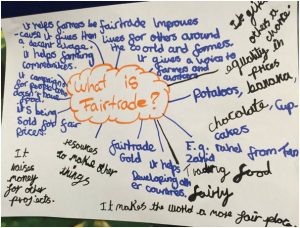 it helps farmers be
cause it gives them
a decent wage.
it helps farming
communities.
it campaigns
for people who
doesn't have
food.
it's being
sold for fair
prices.
Fairtrade improves
lives for others around
the world and farmers.
it gives a voice to
farmers and
workers
others a
equality in
prices
What is
Fairtrade?
Potatoes, banana,
chocolate, cup
cakes
E.g.
Trading food
fairly
fairtrade
Gold
it helps
Developing other
countries.
resources
to make other
things
It
raises
money
for other
projects.
It makes the world a more fair place.